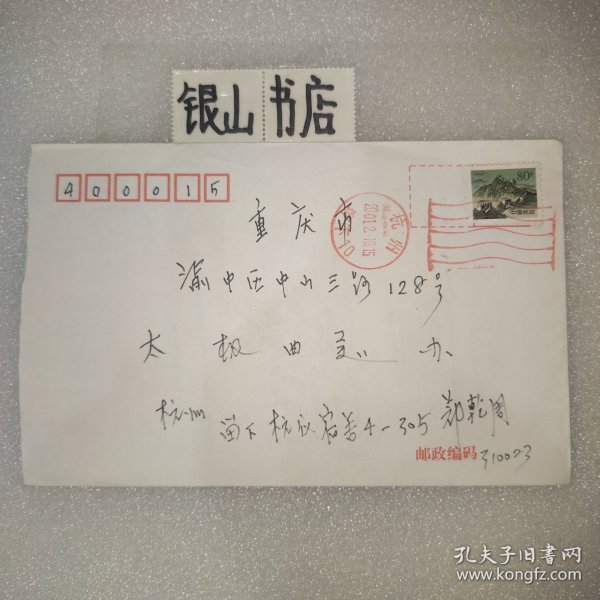 银山书店
400015
80分
中国邮政
杭州
2001.2.10.15
重庆市
渝中区中山三路128号
太极曲美办
杭州 留下 4-305 郑乾周
邮政编码 310023
孔夫子旧书网
www.kongfz.com